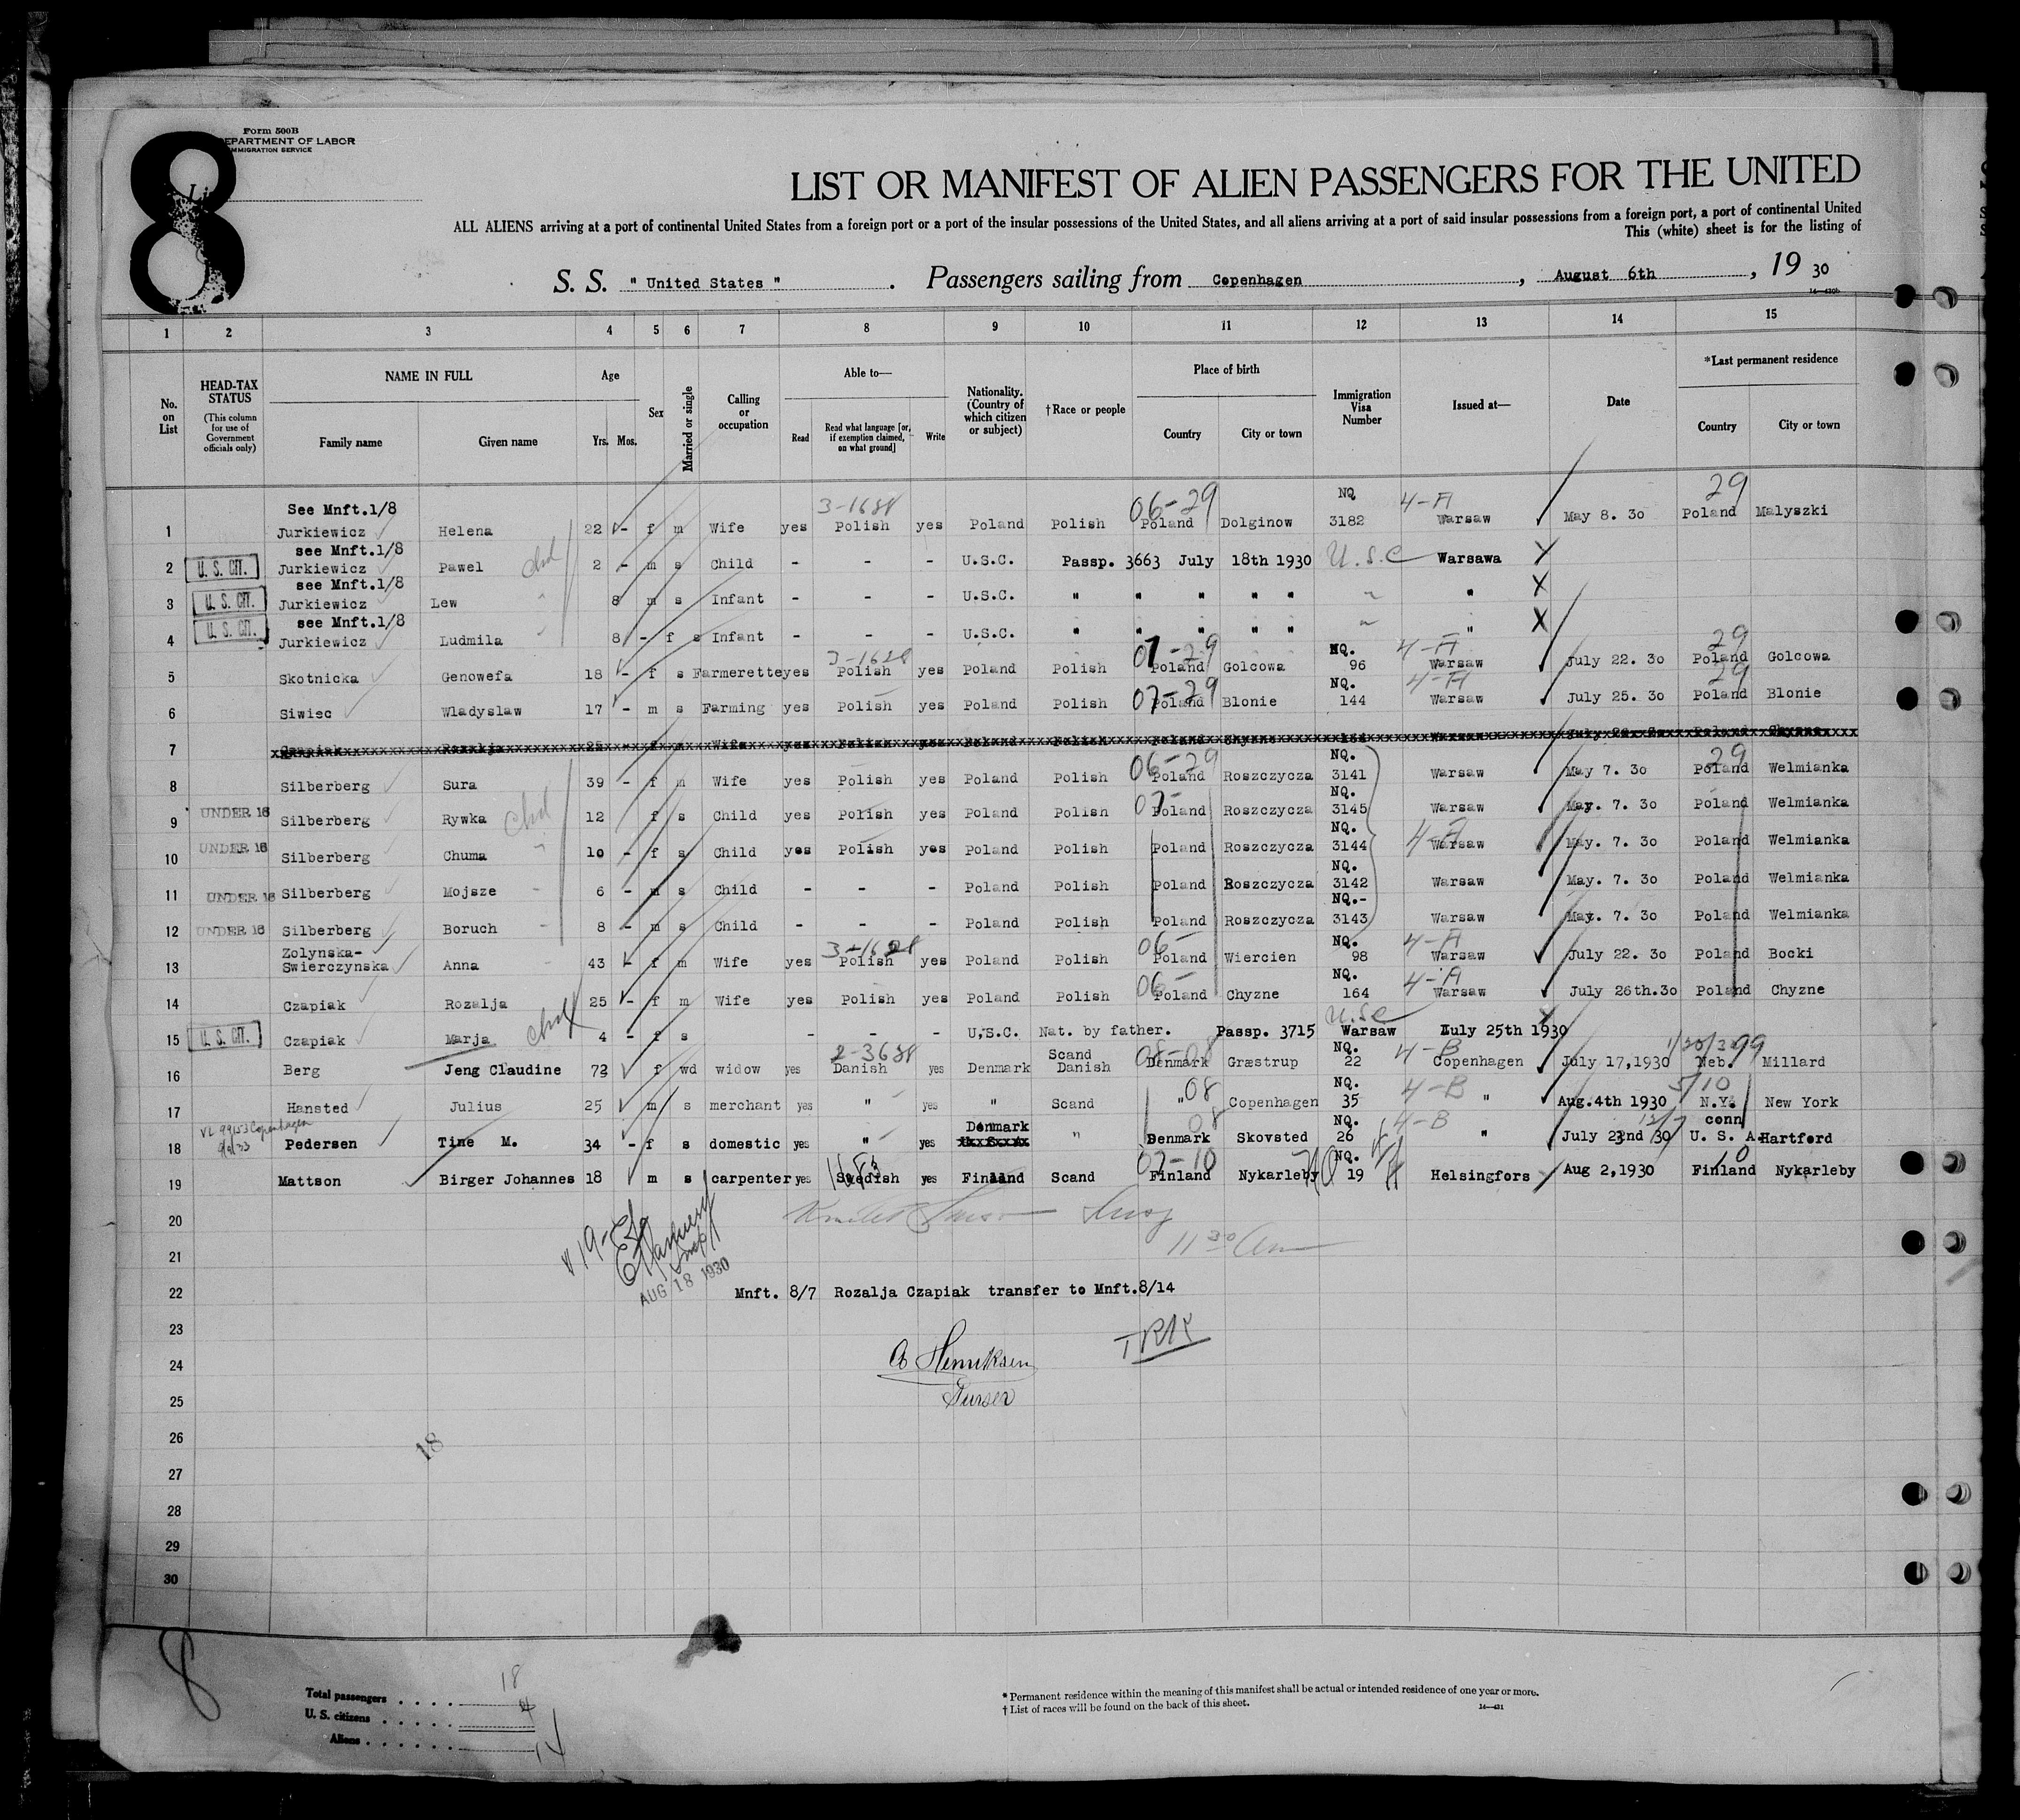 8
Form 500B
DEPARTMENT OF LABOR
IMMIGRATION SERVICE
Li
LIST OR MANIFEST OF ALIEN PASSENGERS FOR THE UNITED
ALL ALIENS arriving at a port of continental United States from a foreign port or a port of the insular possessions of the United States, and all aliens arriving at a port of said insular possessions from a foreign port, a port of continental United
This (white) sheet is for the listing of
S. S. " United States " . Passengers sailing from Copenhagen , August 6th , 19 30
14—430b
1 2 3 4 5 6 7 8 9 10 11 12 13 14 15
No. on List
HEAD-TAX STATUS (This column for use of Government officials only)
NAME IN FULL Family name Given name
Age Yrs. Mos.
Sex
Married or single
Calling or occupation
Able to— Read Read what language [or, if exemption claimed, on what ground] Write
Nationality. (Country of which citizen or subject)
†Race or people
Place of birth Country City or town
Immigration Visa Number
Issued at—
Date
*Last permanent residence Country City or town
See Mnft.1/8 3-1688 06-29 NQ 4-A 29
1 Jurkiewicz Helena 22 - f m Wife yes Polish yes Poland Polish Poland Dolginow 3182 Warsaw May 8. 30 Poland Malyszki
see Mnft.1/8
2 U. S. CIT. Jurkiewicz Pawel 2 - m s Child - - - U.S.C. Passp. 3663 July 18th 1930 U.S.C Warsawa X
see Mnft.1/8
3 U. S. CIT. Jurkiewicz Lew 8 m s Infant - - - U.S.C. " " " " " " X
see Mnft.1/8
4 U. S. CIT. Jurkiewicz Ludmila 8 - f s Infant - - - U.S.C. " " " " " " X
3-1628 07-29 NQ. 4-A 29
5 Skotnicka Genowefa 18 - f s Farmerette yes Polish yes Poland Polish Poland Golcowa 96 Warsaw July 22. 30 Poland Golcowa
07-29 NQ. 4-A 29
6 Siwiec Wladyslaw 17 - m s Farming yes Polish yes Poland Polish Poland Blonie 144 Warsaw July 25. 30 Poland Blonie
7 Czapiak Rozalja 25 - f m Wife yes Polish yes Poland Polish Poland Chyzne 164 Warsaw Poland Chyzne
06-29 NQ. 29
8 Silberberg Sura 39 - f m Wife yes Polish yes Poland Polish Poland Roszczycza 3141 Warsaw May 7. 30 Poland Welmianka
07- NQ.
9 UNDER 16 Silberberg Rywka 12 f s Child yes Polish yes Poland Polish Poland Roszczycza 3145 Warsaw May. 7. 30 Poland Welmianka
NQ. 4-A
10 UNDER 16 Silberberg Chuma 10 - f s Child yes Polish yes Poland Polish Poland Roszczycza 3144 Warsaw May. 7. 30 Poland Welmianka
NQ.
11 UNDER 16 Silberberg Mojsze 6 - m s Child - - - Poland Polish Poland Roszczycza 3142 Warsaw May. 7. 30 Poland Welmianka
NQ.-
12 UNDER 16 Silberberg Boruch 8 - m s Child - - - Poland Polish Poland Roszczycza 3143 Warsaw May. 7. 30 Poland Welmianka
Zolynska- 3-1628 06- NQ. 4-A
13 Swierczynska Anna 43 - f m Wife yes Polish yes Poland Polish Poland Wiercien 98 Warsaw July 22. 30 Poland Bocki
06- NQ. 4-A
14 Czapiak Rozalja 25 - f m Wife yes Polish yes Poland Polish Poland Chyzne 164 Warsaw July 26th.30 Poland Chyzne
U.S.C
15 U. S. CIT. Czapiak Marja 4 - f s - - - U.S.C. Nat. by father. Passp. 3715 Warsaw July 25th 1930
2-3688 Scand 08-08 NQ. 4-B 99
16 Berg Jeng Claudine 73 f wd widow yes Danish yes Denmark Danish Denmark Græstrup 22 Copenhagen July 17,1930 Neb. Millard
08 NQ. 4-B 5/10
17 Hansted Julius 25 m s merchant yes " yes " Scand " Copenhagen 35 " Aug.4th 1930 N.Y. New York
VL 99153 Copenhagen Denmark 08 NQ. 4-B conn
18 Pedersen Tine M. 34 - f s domestic yes " yes U. S. A. " Denmark Skovsted 26 " July 22nd 30 U. S. A. Hartford
07-10 NQ. 10
19 Mattson Birger Johannes 18 m s carpenter yes Swedish yes Finland Scand Finland Nykarleby 19 Helsingfors Aug 2,1930 Finland Nykarleby
20
21 11 30 am
AUG 18 1930
22 Mnft. 8/7 Rozalja Czapiak transfer to Mnft.8/14
23
24 Henriksen
25 Purser
26
18
27
28
29
30
8
Total passengers . . . . 18
U. S. citizens . . . . . 4
Aliens . . . . . . 14
* Permanent residence within the meaning of this manifest shall be actual or intended residence of one year or more.
† List of races will be found on the back of this sheet.
14—431